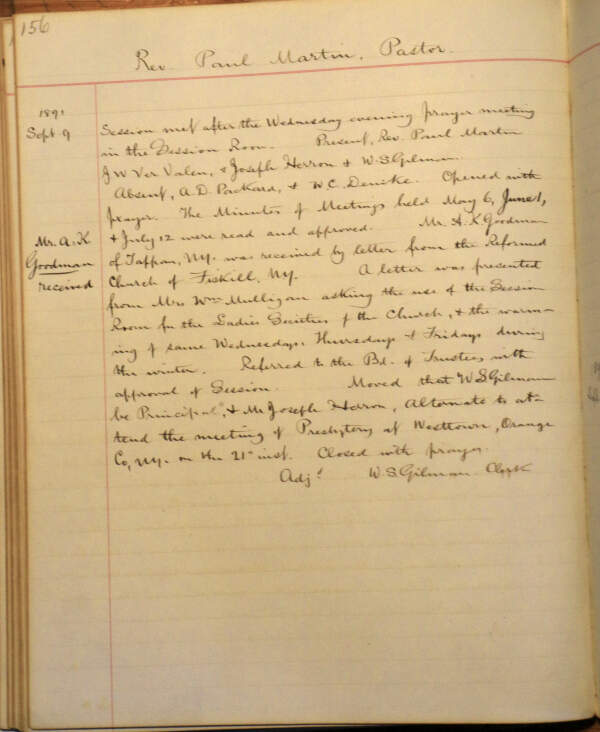 156
Rev. Paul Martin, Pastor.
1891
Sept 9
Session met after the Wednesday evening prayer meeting
in the Session Room. Present, Rev. Paul Martin
J W Ver Valen, & Joseph Herron & W. S. Gilman.
Absent, A. D. Packard, & W. C. Denike. Opened with
prayer. The Minutes of Meetings held May 6, June 1,
& July 12 were read and approved. Mr. A. K. Goodman
Mr. A. K
Goodman
received
of Tappan, N.Y. was received by letter from the Reformed
Church of Fiskill, N.Y. A letter was presented
from Mrs Wm Mulligan asking the use of the Session
Room for the Ladies Societies of the Church, & the warm-
ing of same Wednesdays, Thursdays & Fridays during
the winter. Referred to the Bd. of Trustees with
approval of Session. Moved that W. S Gilman
be Principal, & Mr Joseph Herron, Alternate to at-
tend the meeting of Presbytery at Westtown, Orange
Co, N.Y. on the 21st inst. Closed with prayer.
Adjd W. S. Gilman Clerk